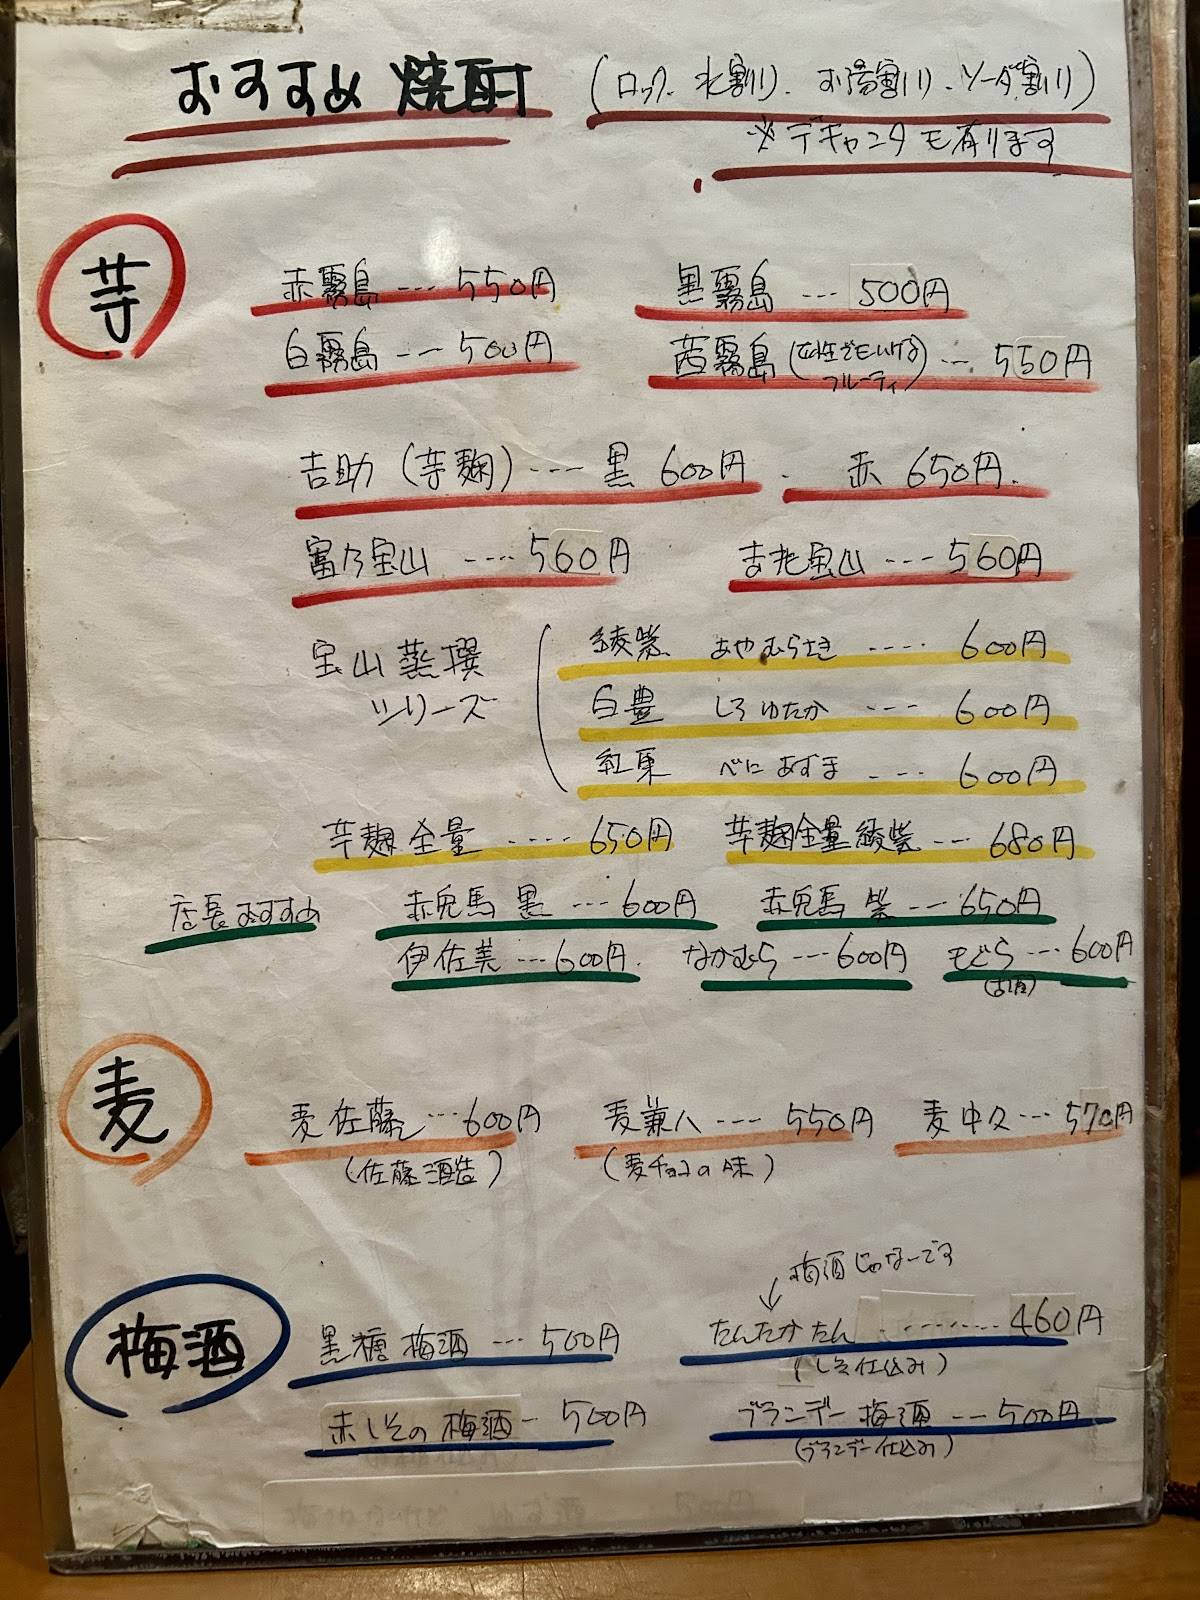 おすすめ 焼酎 (ロック、水割り、お湯割り、ソーダ割り)
※デキャンタも有ります
芋
赤霧島 --- 550円 黒霧島 --- 500円
白霧島 --- 500円 茜霧島 (女性でもいける フルーティ) -- 550円
吉助 (芋麹) --- 黒 600円 、 赤 650円.
富乃宝山 ---- 560円 吉兆宝山 --- 560円
宝山蒸撰シリーズ
綾紫 あやむらさき ---- 600円
白豊 しろゆたか --- 600円
紅東 べにあずま --- 600円
芋麹全量 ---- 650円 芋麹全量綾紫 -- 680円
店長おすすめ 赤兎馬 黒 --- 600円 赤兎馬 紫 -- 650円
伊佐美 --- 600円. なかむら --- 600円 もぐら --- 600円
麦
麦 佐藤 --- 600円 麦兼八 ---- 550円 麦中々 --- 570円
(佐藤酒造) (麦チョコの味)
梅酒じゃないです
梅酒
黒糖 梅酒 --- 500円 たんたかたん -------- 460円
(しそ仕込み)
赤しその梅酒 - 500円 ブランデー梅酒 -- 500円
(ブランデー仕込み)